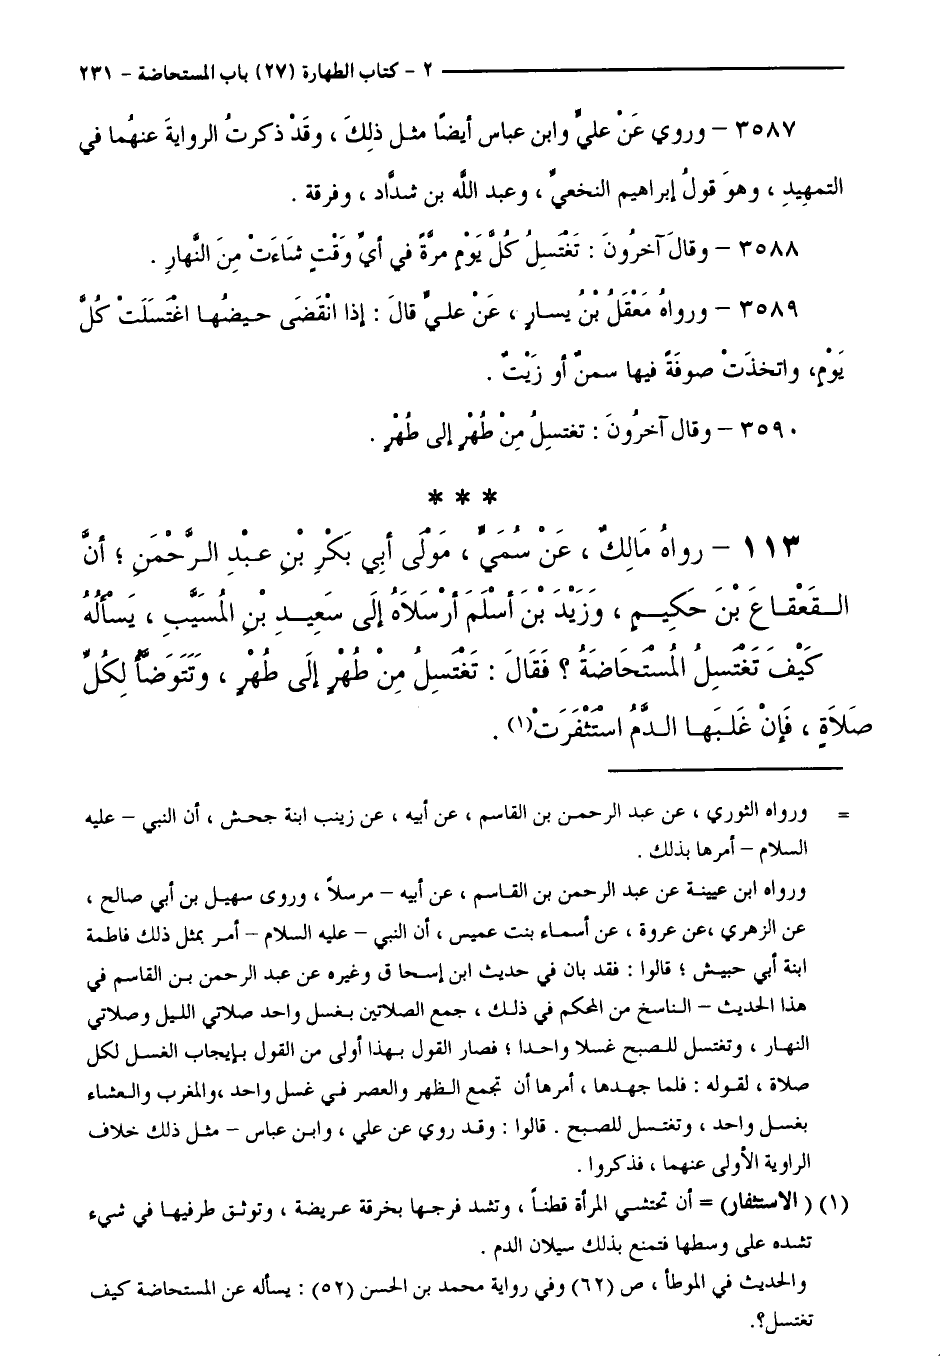 ٢ - كتاب الطهارة (٢٧) باب المستحاضة - ٢٣١
٣٥٨٧ - وروي عَنْ عليٍّ وابن عباس أيضًا مثل ذلِكَ ، وقَدْ ذكرتُ الروايةَ عنهُما في
التمهِيدِ ، وهوَ قولُ إبراهيم النخعيِّ ، وعبد اللَّه بن شدَّاد ، وفرقة .
٣٥٨٨ - وقالَ آخرُونَ : تَغْتَسِلُ كُلَّ يَوْمٍ مرَّةً في أيِّ وَقْتٍ شاءَتْ مِنَ النَّهارِ .
٣٥٨٩ - ورواهُ مَعْقَلُ بْنُ يسارٍ ، عَنْ عليٍّ قالَ : إذا انْقَضَى حيضُها اغْتَسَلَتْ كُلَّ
يَوْمٍ، واتخذَتْ صوفَةً فيها سمنٌ أو زَيْتٌ .
٣٥٩٠ - وقال آخرُونَ : تغتسِلُ مِنْ طُهْرٍ إلى طُهْرٍ .
* * *
١١٣ - رواهُ مَالِكٌ ، عَنْ سُمَيٍّ ، مَوْلَى أبِي بَكْرِ بْنِ عبْدِ الرَّحْمَنِ ؛ أنَّ
القَعْقَاعَ بْنَ حَكِيمٍ ، وَزَيْدَ بْنَ أسْلَمَ أرْسَلاَهُ إلَى سَعِيدِ بْنِ المُسَيَّبِ ، يَسألُهُ
كَيْفَ تَغْتَسِلُ المُسْتَحَاضَةُ ؟ فَقَالَ : تَغْتَسِلُ مِنْ طُهْرٍ إلَى طُهْرٍ ، وتَتَوَضَّأُ لِكُلِّ
صَلاَةٍ ، فَإنْ غَلَبَها الدَّمُ اسْتَثْفَرَتْ(١) .
= ورواه الثوري ، عن عبد الرحمن بن القاسم ، عن أبيه ، عن زينب ابنة جحش ، أن النبي - عليه
السلام - أمرها بذلك .
ورواه ابن عيينة عن عبد الرحمن بن القاسم ، عن أبيه - مرسلاً ، وروى سهيل بن أبي صالح ،
عن الزهري ،عن عروة ، عن أسماء بنت عميس ، أن النبي - عليه السلام - أمر بمثل ذلك فاطمة
ابنة أبي حبيش ؛ قالوا : فقد بان في حديث ابن إسحا ق وغيره عن عبد الرحمن بن القاسم في
هذا الحديث - الناسخ من المحكم في ذلك ، جمع الصلاتين بغسل واحد صلاتي الليل وصلاتي
النهار ، وتغتسل للصبح غسلا واحدا ؛ فصار القول بهذا أولى من القول بإيجاب الغسل لكل
صلاة ، لقوله : فلما جهدها ، أمرها أن تجمع الظهر والعصر في غسل واحد ،والمغرب والعشاء
بغسل واحد ، وتغتسل للصبح . قالوا : وقد روي عن علي ، وابن عباس - مثل ذلك خلاف
الراوية الأولى عنهما ، فذكروا .
(١) ( الاستثفار) = أن تحتشي المرأة قطناً ، وتشد فرجها بخرقة عريضة ، وتوثق طرفيها في شيء
تشده على وسطها فتمنع بذلك سيلان الدم .
والحديث في الموطأ ، ص (٦٢) وفي رواية محمد بن الحسن (٥٢) : يسأله عن المستحاضة كيف
تغتسل؟.